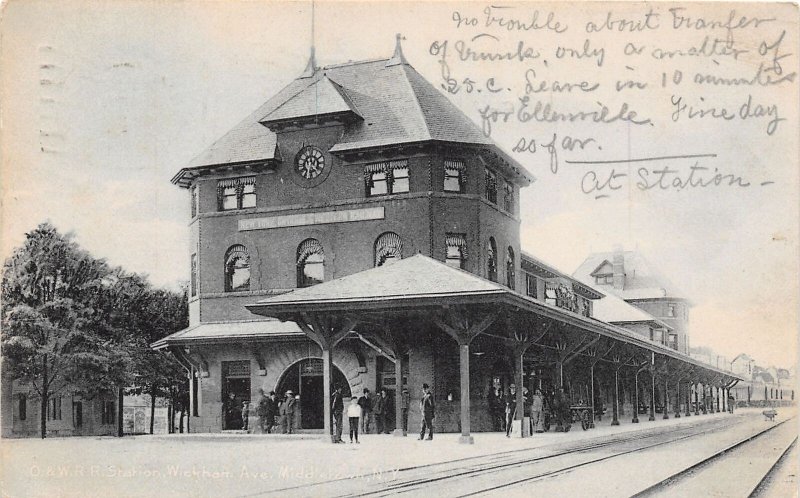 No Trouble about Tranfer
of Trunk, only a matter of
25. C. Leave in 10 minutes
for Ellenville. Fine day
so far.
At Station -
O & W. R. R. Station, Wickham Ave. Middletown, N.Y.